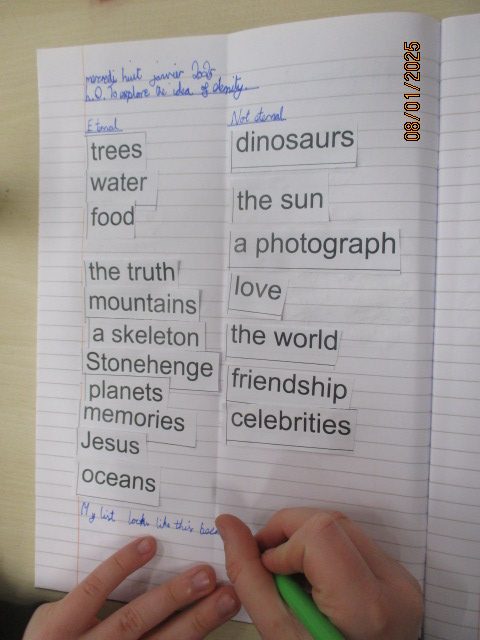 mercredi huit janvier 2025
L.O. To explore the idea of eternity.
Eternal
trees
water
food
the truth
mountains
a skeleton
Stonehenge
planets
memories
Jesus
oceans
Not eternal
dinosaurs
the sun
a photograph
love
the world
friendship
celebrities
My list looks like this
08/01/2025